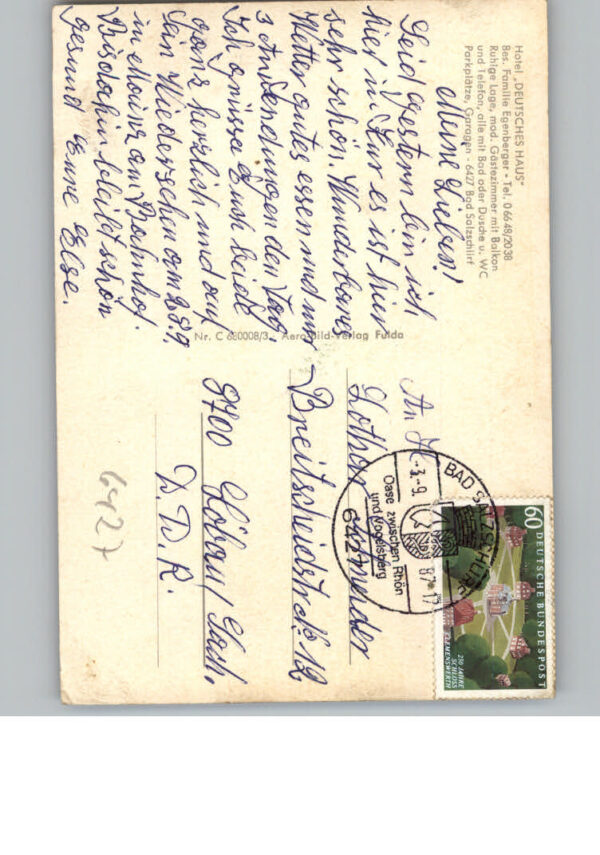 Hotel „DEUTSCHES HAUS"
Bes. Familie Egenberger - Tel. 0 66 48/2038
Ruhige Lage, mod. Gästezimmer mit Balkon
und Telefon, alle mit Bad oder Dusche u. WC
Parkplätze, Garagen - 6427 Bad Salzschlirf
Meine Lieben!
Seid gestern bin ich
hier in Kur es ist hier
sehr schön. Wunderbares
Wetter gutes essen und nur
3 Anwendungen den Tag
Ich grüsse Euch beide
ganz herzlich und auf
ein Wiedersehen am 28.9.
in Mainz am Bahnhof.
Bis dahin bleibt schön
gesund Eure Else.
Nr. C 680008/3 Aero-Bild-Verlag Fulda
An
Lothar Schneider
Breitscheidstr. 12
8700 Löbau/Sach.
D.D.R.
6427
BAD SALZSCHLIRF
-3.-9. 87-17
Oase zwischen Rhön
und Vogelsberg
6427
60 DEUTSCHE BUNDESPOST
250 JAHRE
SCHLOSS
CLEMENSWERTH